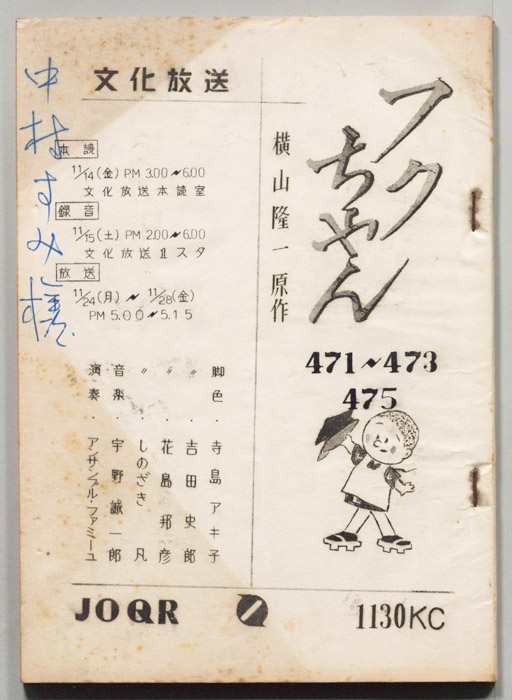 フクちゃん
横山隆一原作
471~473
475
文化放送
本読
11/14(金) PM 3.00~6.00
文化放送本読室
録音
11/15(土) PM 2.00~6.00
文化放送11スタ
放送
11/24(月)~11/28(金)
PM 5.00~5.15
脚色・寺島アキ子
〃・吉田史郎
〃・花島邦彦
〃・しのざき凡
音楽・宇野誠一郎
演奏・アンサンブル・ファミーユ
中村すみ様
JOQR
1130KC